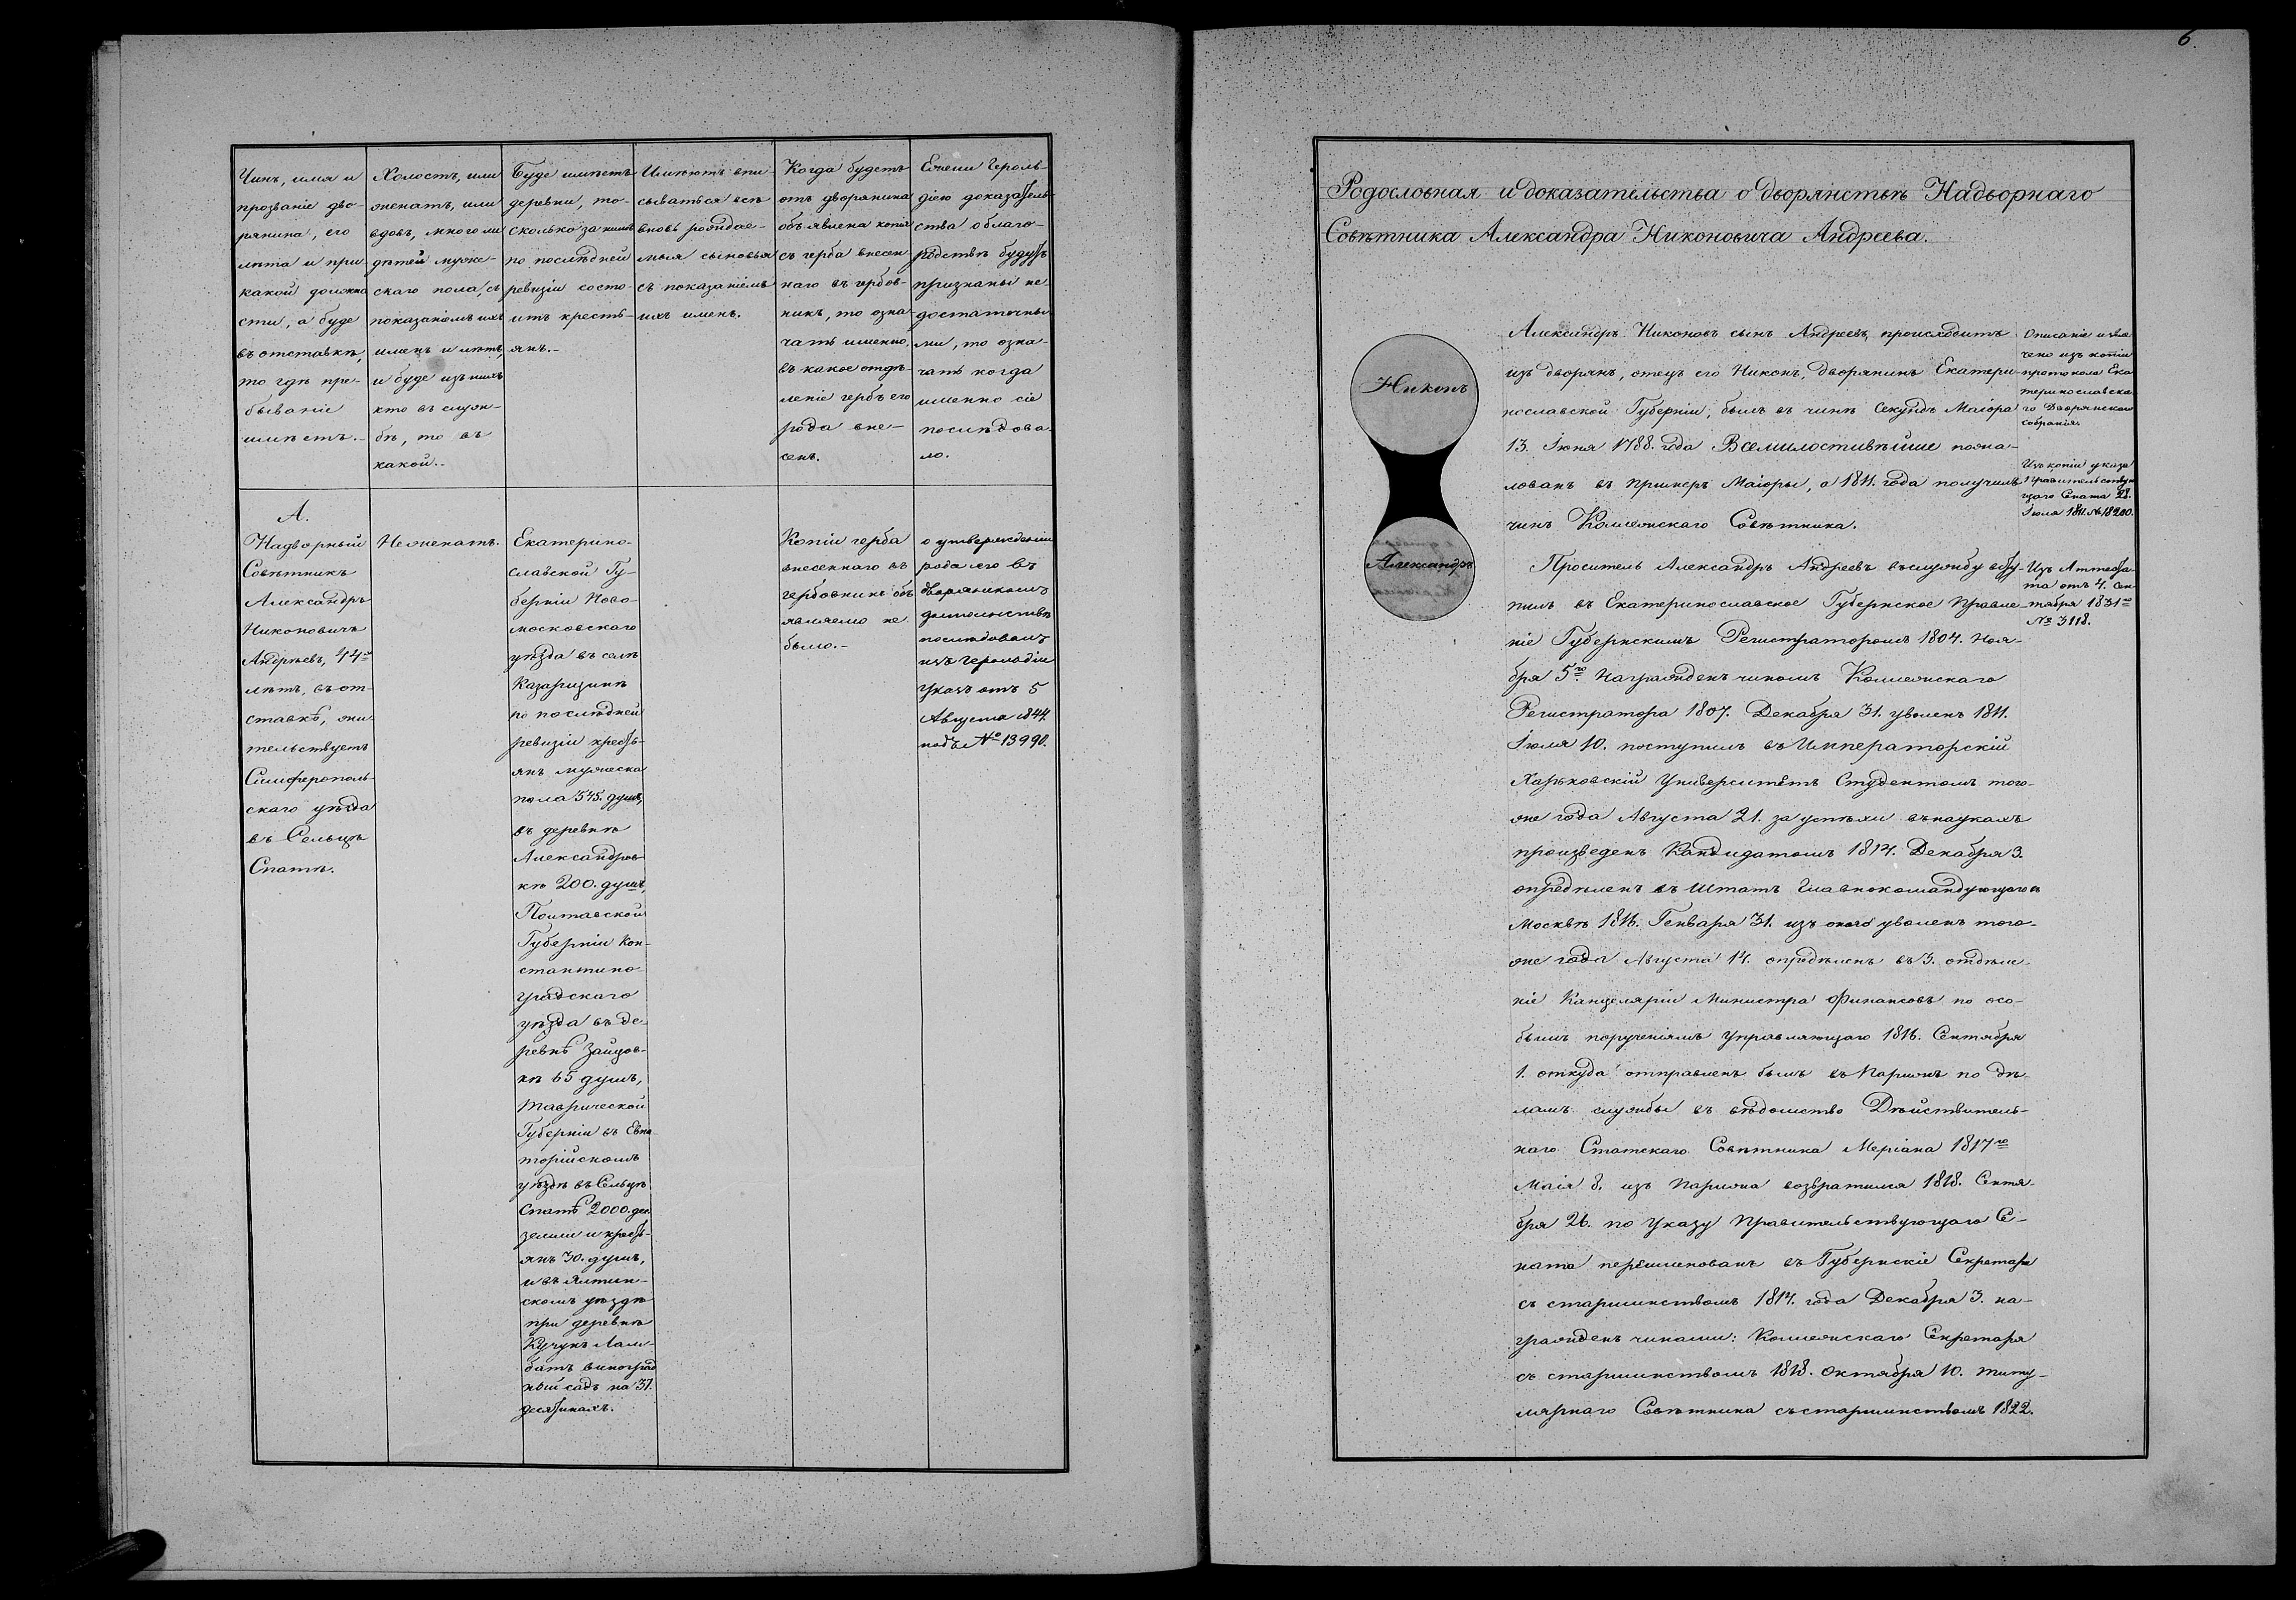 6.
Чинъ, имя и
прозваніе дво-
рянина, его
лѣта и при
какой должно
сти, а буде
въ отставкѣ,
то гдѣ пре-
бываніе
имѣетъ.-
Холостъ, или
женатъ, или
вдовъ, много ли
дѣтей муже-
скаго пола, съ
показаніемъ ихъ
именъ и лѣтъ,
и буде изъ нихъ
кто въ служ-
бѣ, то въ
какой.-
Буде имѣетъ
деревни, то-
сколько за нимъ
по послѣдней
ревизіи состо-
итъ кресть-
янъ.-
Имѣютъ впи-
сываться всѣ
вновь рождае-
мыя сыновья
съ показаніемъ
ихъ именъ.
Когда будетъ
отъ дворянина
объявлена копія
съ герба внесен
наго въ гербов-
никъ, то озна-
чать именно,
въ какое отдѣ-
леніе гербъ его
рода вне-
сенъ.
Ежели Героль-
діею доказатель-
ства о благо-
родствѣ будутъ
признаны не-
достаточны-
ми, то озна-
чать когда
именно сіе
послѣдова-
ло.
А.
Надворный
Совѣтникъ
Александръ
Никоновичъ
Андрѣевъ, 44-
лѣтъ, въ от-
ставкѣ, жи-
тельствуетъ
Симферополь-
скаго уѣзда
въ Сельцѣ
Спатѣ.
Неженатъ.
Екатерино-
славской Гу-
берніи Ново-
московскаго
уѣзда въ селѣ
по послѣдней
ревизіи кресть-
янъ мужеска
пола 545. душъ,
въ деревнѣ
Александров
кѣ 200. душъ,
Полтавской
Губерніи Кон-
стантино-
градскаго
уѣзда въ де-
ревнѣ Зайцов-
кѣ 65 душъ,
Таврической
Губерніи въ Евпа
торійскомъ
уѣздѣ въ Сельцѣ
Спатѣ 2000. дес.
земли и кресть-
янъ 30. душъ,
и въ Ялтин-
скомъ уѣздѣ
при деревнѣ
Кучукъ Лам-
батъ виноград
ный садъ на 37.
десятинахъ.
Копіи герба
внесеннаго въ
гербовникъ объ
являемо не
было.-
о утвержденіи
рода его въ
дворянскомъ
достоинствѣ
послѣдовалъ
изъ Герольдіи
Указъ отъ 5
Августа 1844
подъ № 13990.
Родословная и доказательства о дворянствѣ Надворнаго
Совѣтника Александра Никоновича Андреева.
Никонъ
Александръ
Александръ Никоновъ сынъ Андреевъ, происходитъ
изъ дворянъ, отецъ его Никонъ, дворянинъ Екатери-
нославской Губерніи, былъ въ чинѣ Секундъ Маіора
13. Іюня 1788. года Всемилостивѣйше пожа-
лованъ въ Примеръ Маіоры, а 1811. года получилъ
чинъ Коллежскаго Совѣтника.
Проситель Александръ Андреевъ въ службу всту-
пилъ въ Екатеринославское Губернское Правле-
ніе Губернскимъ Регистраторомъ 1804. Ноя-
бря 5го. Награжденъ чиномъ Коллежскаго
Регистратора 1807. Декабря 31. уволенъ 1811.
Іюля 10. поступилъ въ Императорскій
Харьковскій Университетъ Студентомъ того-
же года Августа 21. за успѣхи въ наукахъ
произведенъ Кандидатомъ 1814. Декабря 3.
опредѣленъ въ Штатъ Главнокомандующаго въ
Москвѣ 1816. Генваря 31. изъ онаго уволенъ того-
же года Августа 14. опредѣленъ въ 3. отдѣле-
ніе Канцеляріи Министра Финансовъ по осо-
бымъ порученіямъ Управляющаго 1816. Сентября
1. откуда отправленъ былъ въ Парижъ по дѣ-
ламъ службы въ вѣдомство Дѣйствитель-
наго Статскаго Совѣтника Меріана 1817го
Маія 8. изъ Парижа возвратился 1818. Сентя-
бря 26. по Указу Правительствующаго Се-
ната переименованъ въ Губернскіе Секретари
съ старшинствомъ 1814. года Декабря 3. на-
гражденъ чинами: Коллежскаго Секретаря
съ старшинствомъ 1818. Октября 10. Титу-
лярнаго Совѣтника съ старшинствомъ 1822.
Описаніе извле
чено изъ копіи
протокола Ека
теринославска
го Дворянскаго
собранія.
Изъ копіи указа
Правительствую
щаго Сената 28.
Іюля 1811. № 18200.
Изъ Аттеста-
та отъ 4. Сен
тября 1831го
№ 3118.